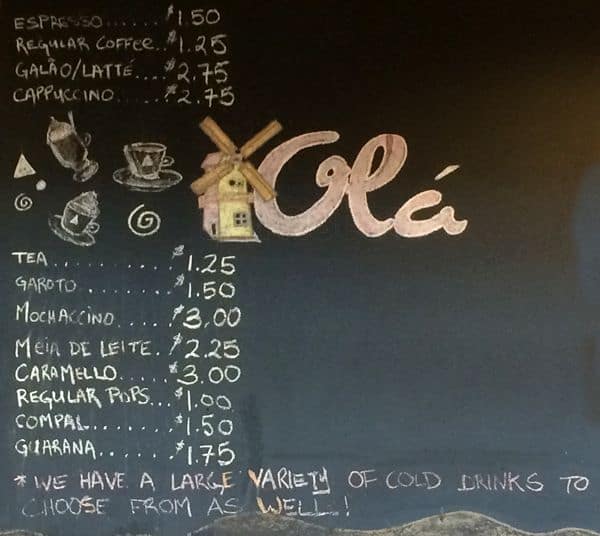 ESPRESSO...... $1.50
REGULAR COFFEE..$1.25
GALÃO/LATTÉ....$2.75
CAPPUCCINO......$2.75
Olá
TEA...........$1.25
GAROTO.........$1.50
MOCHACCINO.....$3.00
MEIA DE LEITE.$2.25
CARAMELLO......$3.00
REGULAR POPS...$1.00
COMPAL.........$1.50
GUARANA.......$1.75
*WE HAVE A LARGE VARIETY OF COLD DRINKS TO
CHOOSE FROM AS WELL!